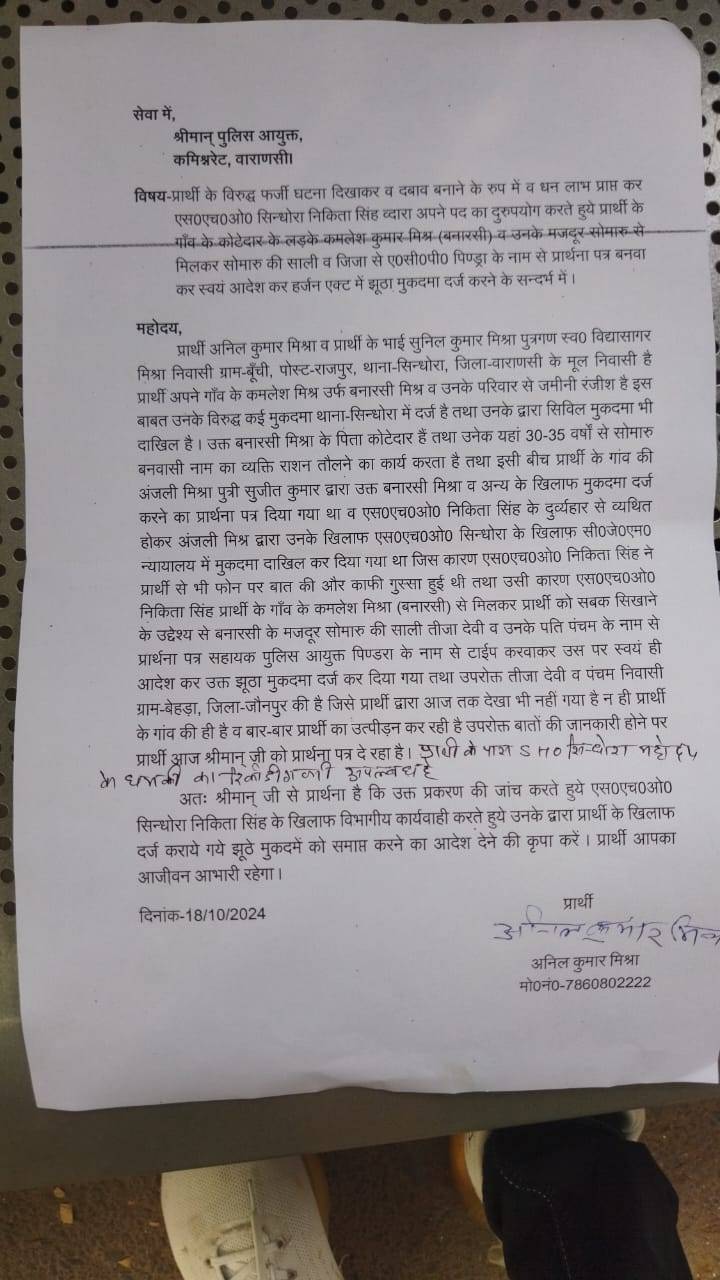 सेवा में,
श्रीमान् पुलिस आयुक्त,
कमिश्नरेट, वाराणसी।
विषय-प्रार्थी के विरुद्ध फर्जी घटना दिखाकर व दबाव बनाने के रुप में व धन लाभ प्राप्त कर
एस०एच०ओ० सिन्धोरा निकिता सिंह व्दारा अपने पद का दुरुपयोग करते हुये प्रार्थी के
गाँव के कोटेदार के लड़के कमलेश कुमार मिश्र (बनारसी) व उनके मजदूर सोमारु से
मिलकर सोमारु की साली व जिजा से ए०सी०पी० पिण्ड्रा के नाम से प्रार्थना पत्र बनवा
कर स्वयं आदेश कर हर्जन एक्ट में झूठा मुकदमा दर्ज करने के सन्दर्भ में।
महोदय,
प्रार्थी अनिल कुमार मिश्रा व प्रार्थी के भाई सुनिल कुमार मिश्रा पुत्रगण स्व० विद्यासागर
मिश्रा निवासी ग्राम-बूँची, पोस्ट-राजपुर, थाना-सिन्धोरा, जिला-वाराणसी के मूल निवासी है
प्रार्थी अपने गाँव के कमलेश मिश्र उर्फ बनारसी मिश्र व उनके परिवार से जमीनी रंजीश है इस
बाबत उनके विरुद्ध कई मुकदमा थाना-सिन्धोरा में दर्ज है तथा उनके द्वारा सिविल मुकदमा भी
दाखिल है। उक्त बनारसी मिश्रा के पिता कोटेदार हैं तथा उनेक यहां 30-35 वर्षों से सोमारु
बनवासी नाम का व्यक्ति राशन तौलने का कार्य करता है तथा इसी बीच प्रार्थी के गांव की
अंजली मिश्रा पुत्री सुजीत कुमार द्वारा उक्त बनारसी मिश्रा व अन्य के खिलाफ मुकदमा दर्ज
करने का प्रार्थना पत्र दिया गया था व एस०एच०ओ० निकिता सिंह के दुर्व्यहार से व्यथित
होकर अंजली मिश्र द्वारा उनके खिलाफ एस०एच०ओ० सिन्धोरा के खिलाफ़ सी०जे०एम०
न्यायालय में मुकदमा दाखिल कर दिया गया था जिस कारण एस०एच०ओ० निकिता सिंह ने
प्रार्थी से भी फोन पर बात की और काफी गुस्सा हुई थी तथा उसी कारण एस०एच०ओ०
निकिता सिंह प्रार्थी के गाँव के कमलेश मिश्रा (बनारसी) से मिलकर प्रार्थी को सबक सिखाने
के उद्देश्य से बनारसी के मजदूर सोमारु की साली तीजा देवी व उनके पति पंचम के नाम से
प्रार्थना पत्र सहायक पुलिस आयुक्त पिण्डरा के नाम से टाईप करवाकर उस पर स्वयं ही
आदेश कर उक्त झूठा मुकदमा दर्ज कर दिया गया तथा उपरोक्त तीजा देवी व पंचम निवासी
ग्राम-बेहड़ा, जिला-जौनपुर की है जिसे प्रार्थी द्वारा आज तक देखा भी नहीं गया है न ही प्रार्थी
के गांव की ही है व बार-बार प्रार्थी का उत्पीड़न कर रही है उपरोक्त बातों की जानकारी होने पर
प्रार्थी आज श्रीमान् जी को प्रार्थना पत्र दे रहा है। प्रार्थी के पास SHO सिन्धोरा
के धमकी का उपलब्ध है
अतः श्रीमान् जी से प्रार्थना है कि उक्त प्रकरण की जांच करते हुये एस०एच०ओ०
सिन्धोरा निकिता सिंह के खिलाफ विभागीय कार्यवाही करते हुये उनके द्वारा प्रार्थी के खिलाफ
दर्ज कराये गये झूठे मुकदमें को समाप्त करने का आदेश देने की कृपा करें। प्रार्थी आपका
आजीवन आभारी रहेगा।
दिनांक-18/10/2024
प्रार्थी
अनिल कुमार मिश्रा
अनिल कुमार मिश्रा
मो०नं०-7860802222